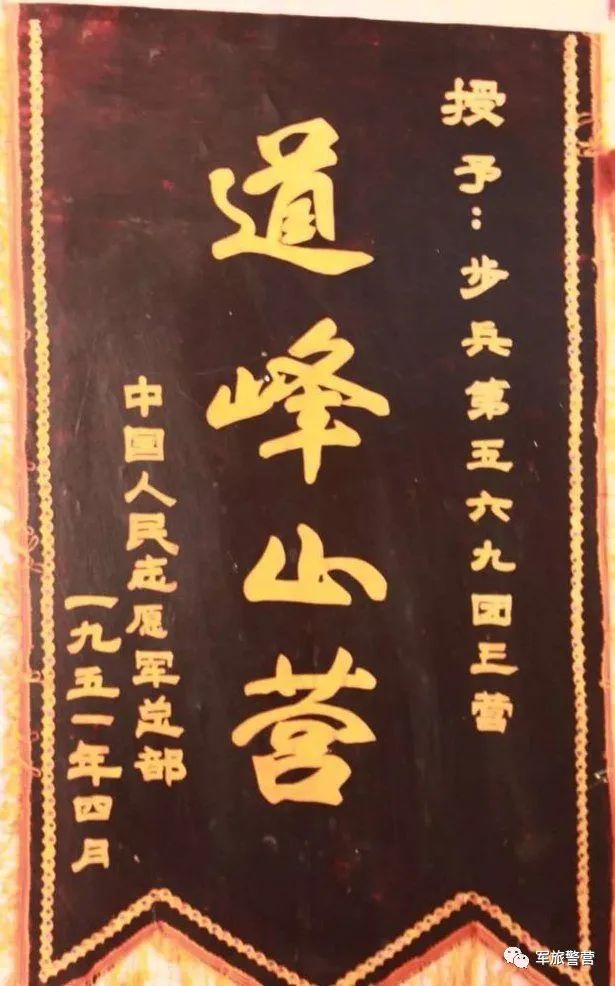 授予：步兵第五六九团三营
道峰山营
中国人民志愿军总部
一九五一年四月
军旅警营